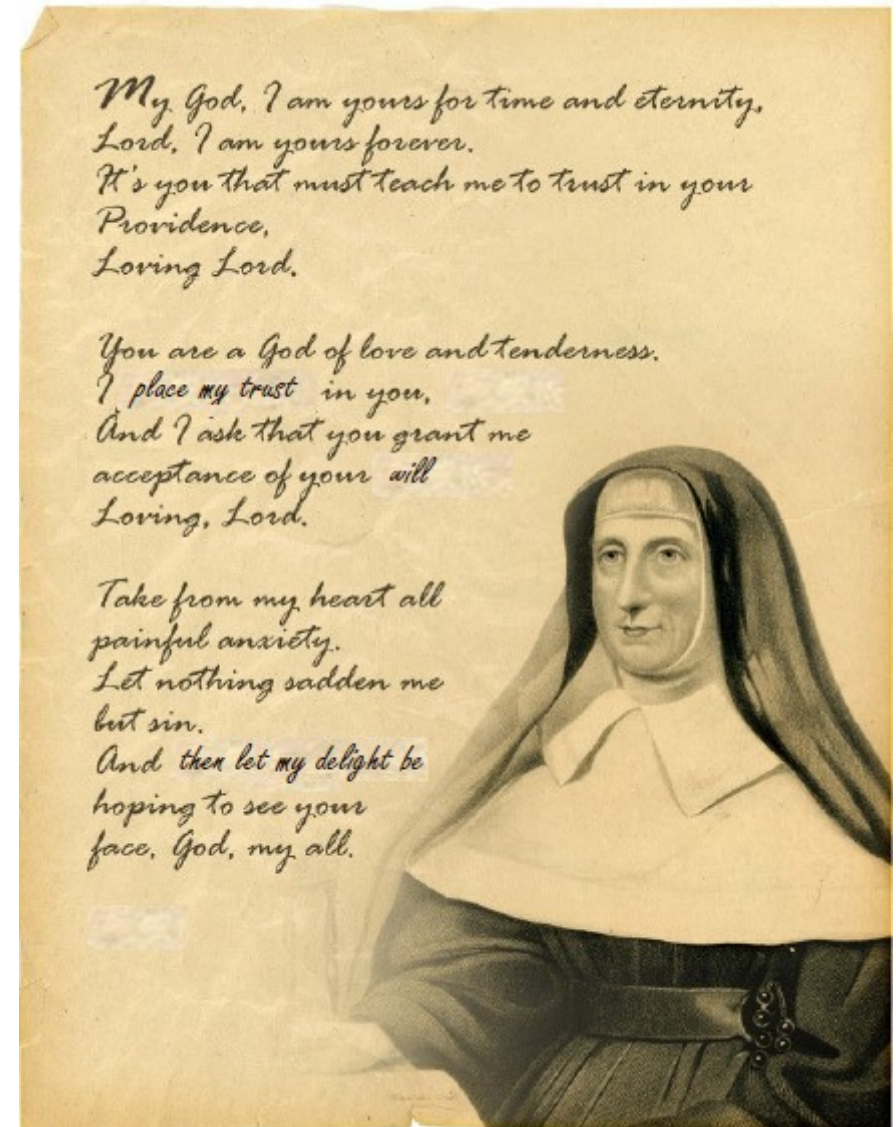 My God, I am yours for time and eternity,
Lord, I am yours forever.
It's you that must teach me to trust in your
Providence,
Loving Lord.
You are a God of love and tenderness.
I place my trust in you,
And I ask that you grant me
acceptance of your will
Loving, Lord.
Take from my heart all
painful anxiety.
Let nothing sadden me
but sin.
And then let my delight be
hoping to see your
face, God, my all.